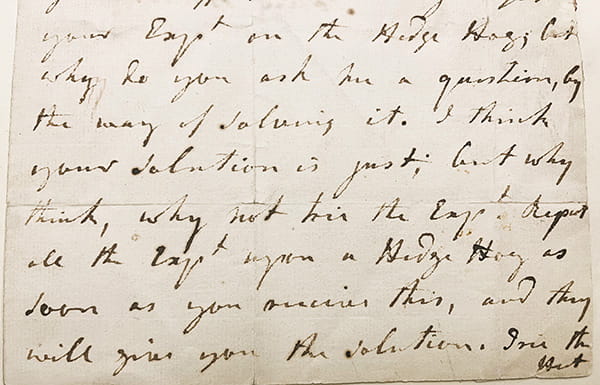 your Expt on the Hedge Hog; but
why do you ask me a question, by
the way of solving it. I think
your solution is just; but why
think, why not trie the Expt. Repeat
all the Expt upon a Hedge Hog as
soon as you receive this, and they
will give you the solution. Trie the
Heat